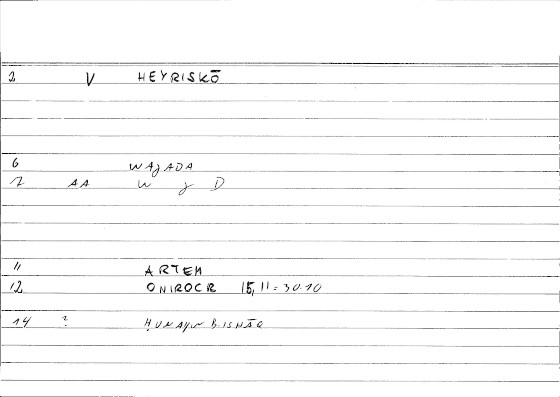 2 V HEYRISKŌ
6 WAJADA
7 AA W J D
11 ARTEM
12 ONIROCR 15, 11 = 30.10
14 ? ḤUNAYN B. ISḤĀQ